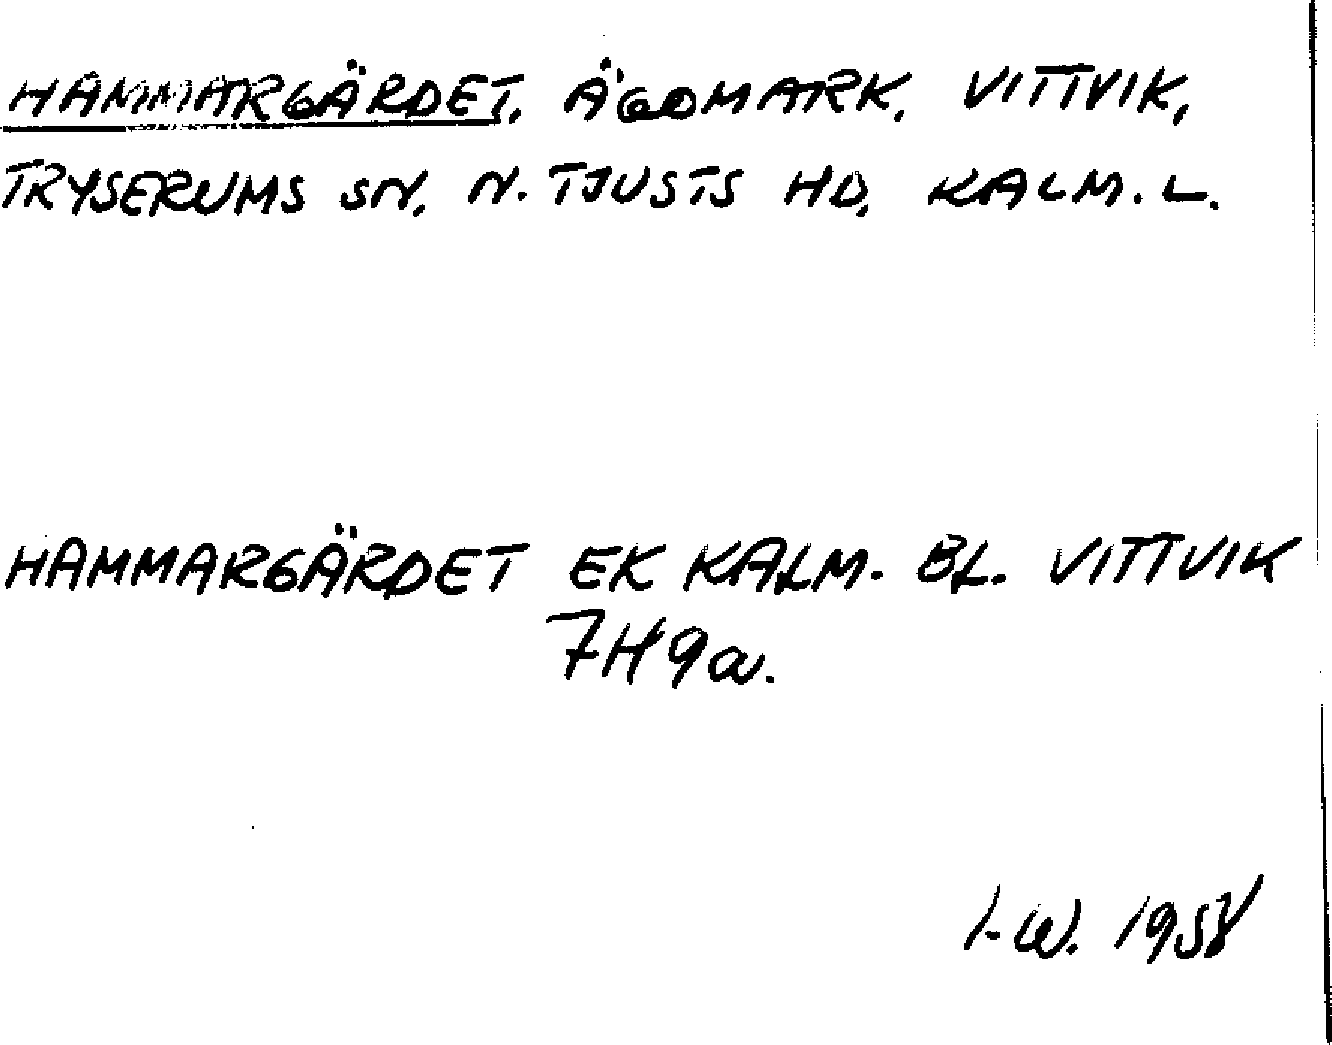 HAMMARGÄRDET, ÄGOMARK, VITTVIK,
TRYSERUMS SN, N. TJUSTS HD, KALM. L.
HAMMARGÄRDET EK KALM. BL. VITTVIK
7H9a.
I.W. 1958